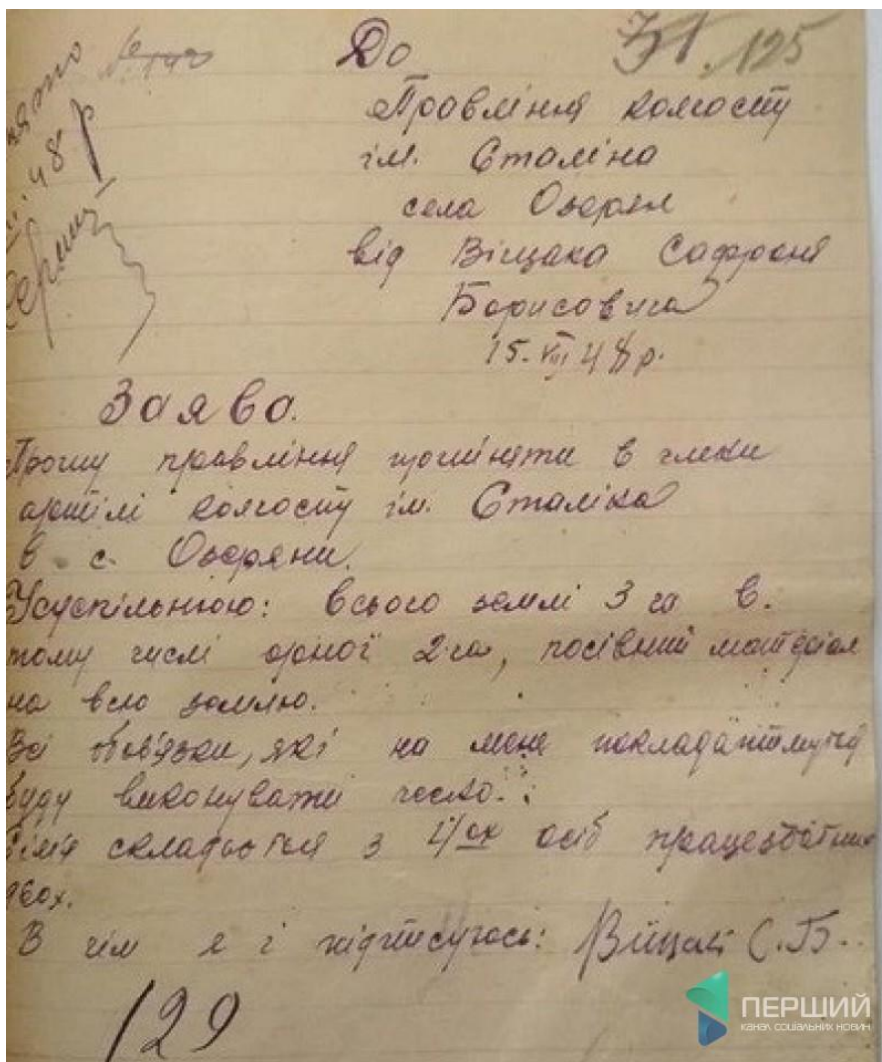 До
31. 125
Правління колгоспу
ім. Сталіна
села Озеряни
від Віщака Софрона
Борисовича
15.VIII 48 р.
48 р
Заява.
Прошу правління прийняти в члени
артілі колгоспу ім. Сталіна
в с. Озеряни.
Усуспільнюю: всього землі 3 га в.
тому числі орної 2 га, посівний матеріал
на всю землю.
Всі обов'язки, які на мене покладатимуться
буду виконувати чесно.
Сім'я складається з 4/ох осіб працездатних
двох.
В чім я і підписуюсь: Віщак С.Б.
129
ПЕРШИЙ
КАНАЛ СОЦІАЛЬНИХ НОВИН